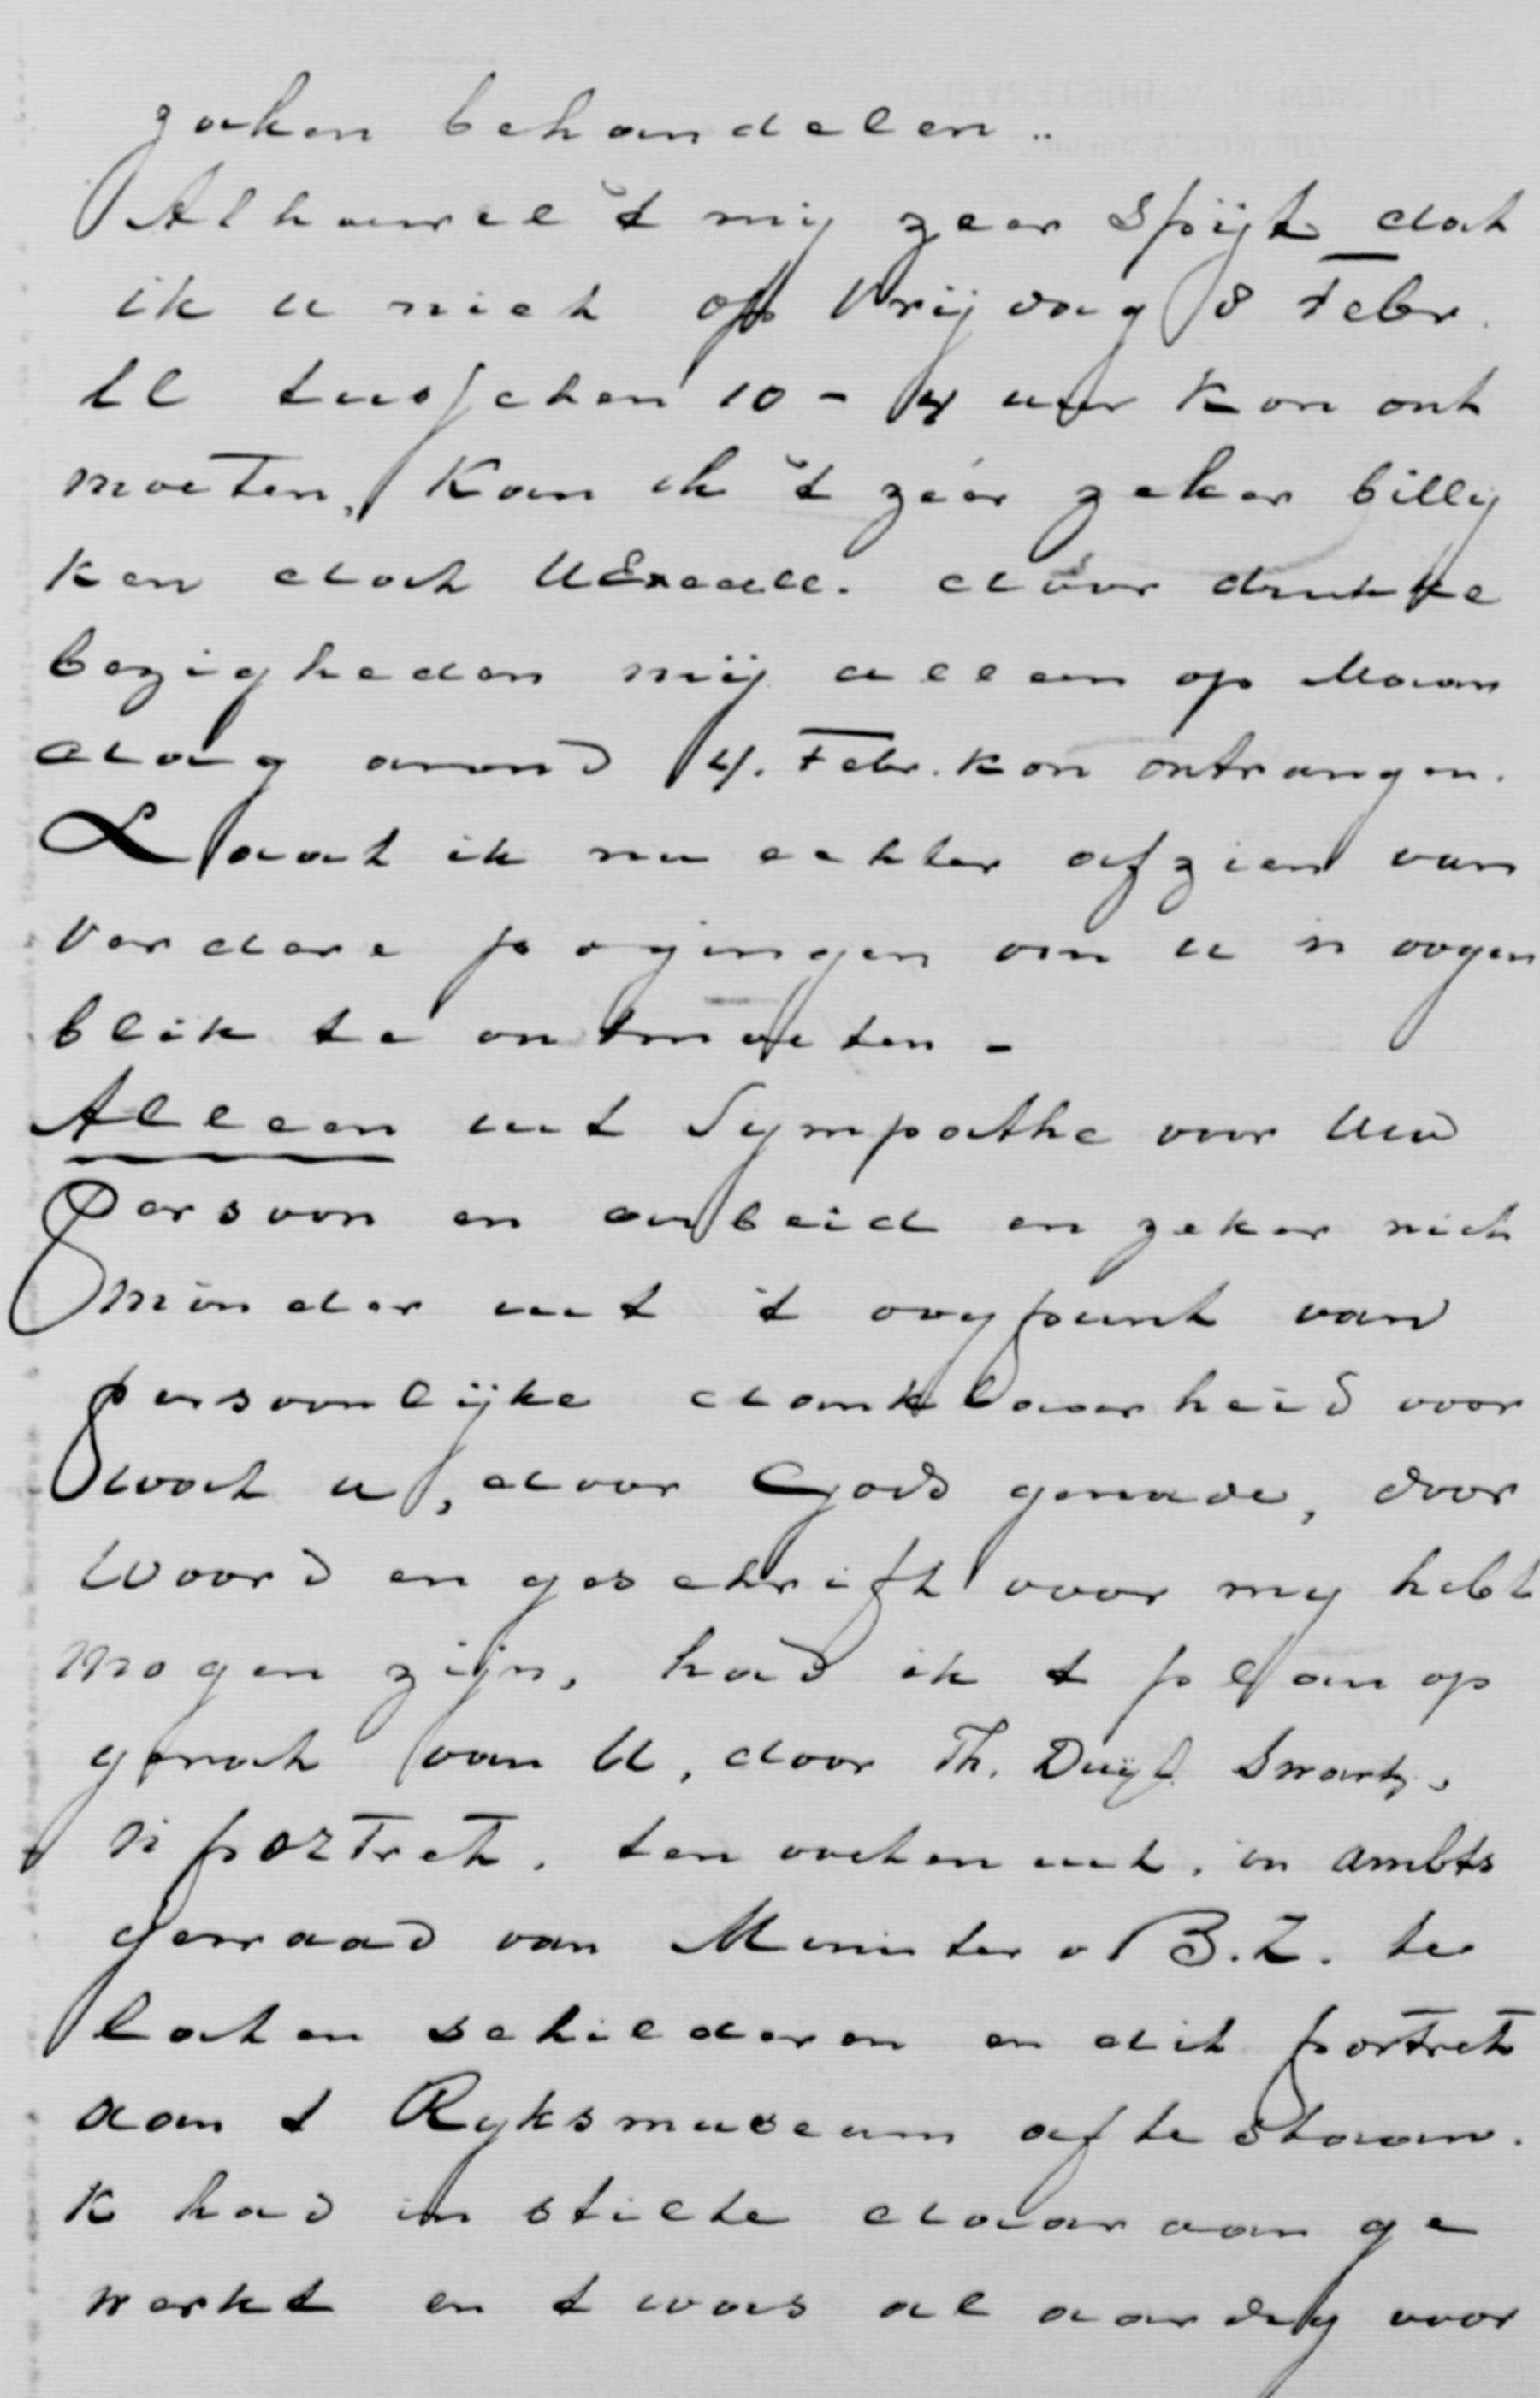 zaken behandelen..
Alhoewel 't mij zeer spijt dat
ik u niet op Vrijdag 8 Febr.
ll tusschen 10 - 4 uur kon ont
moeten, kan ik 't zéér zeker billij
ken dat UExcell. dóór drukke
bezigheden mij alleen op Maan
dag avond 4. Febr. kon ontvangen.
Laat ik nu echter afzien van
verdere pogingen om u 'n oogen
blik te ontmoeten -
Alleen uit Sympathe voor Uw
Persoon en arbeid en zeker niet
minder uit 't oogpunt van
persoonlijke dankbaarheid voor
wat u, door Gods genade, door
woord en geschrift voor my hebt
mogen zijn, had ik t plan op
gevat van U, door Th. Duijl Swartz,
'n portret. ten voeten uit. in ambts
gewaad van Minister v B.Z. te
laten schilderen en dit portret
aan t Ryksmuseum af te staan.
k had in stilte daaraan ge
werkt en t was al aardig voor